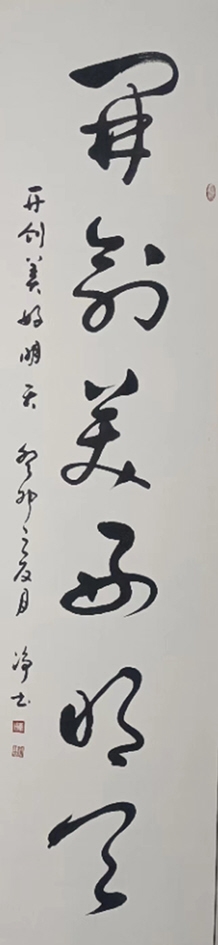 開創美好明天
开创美好明天 癸卯之夏月 净书